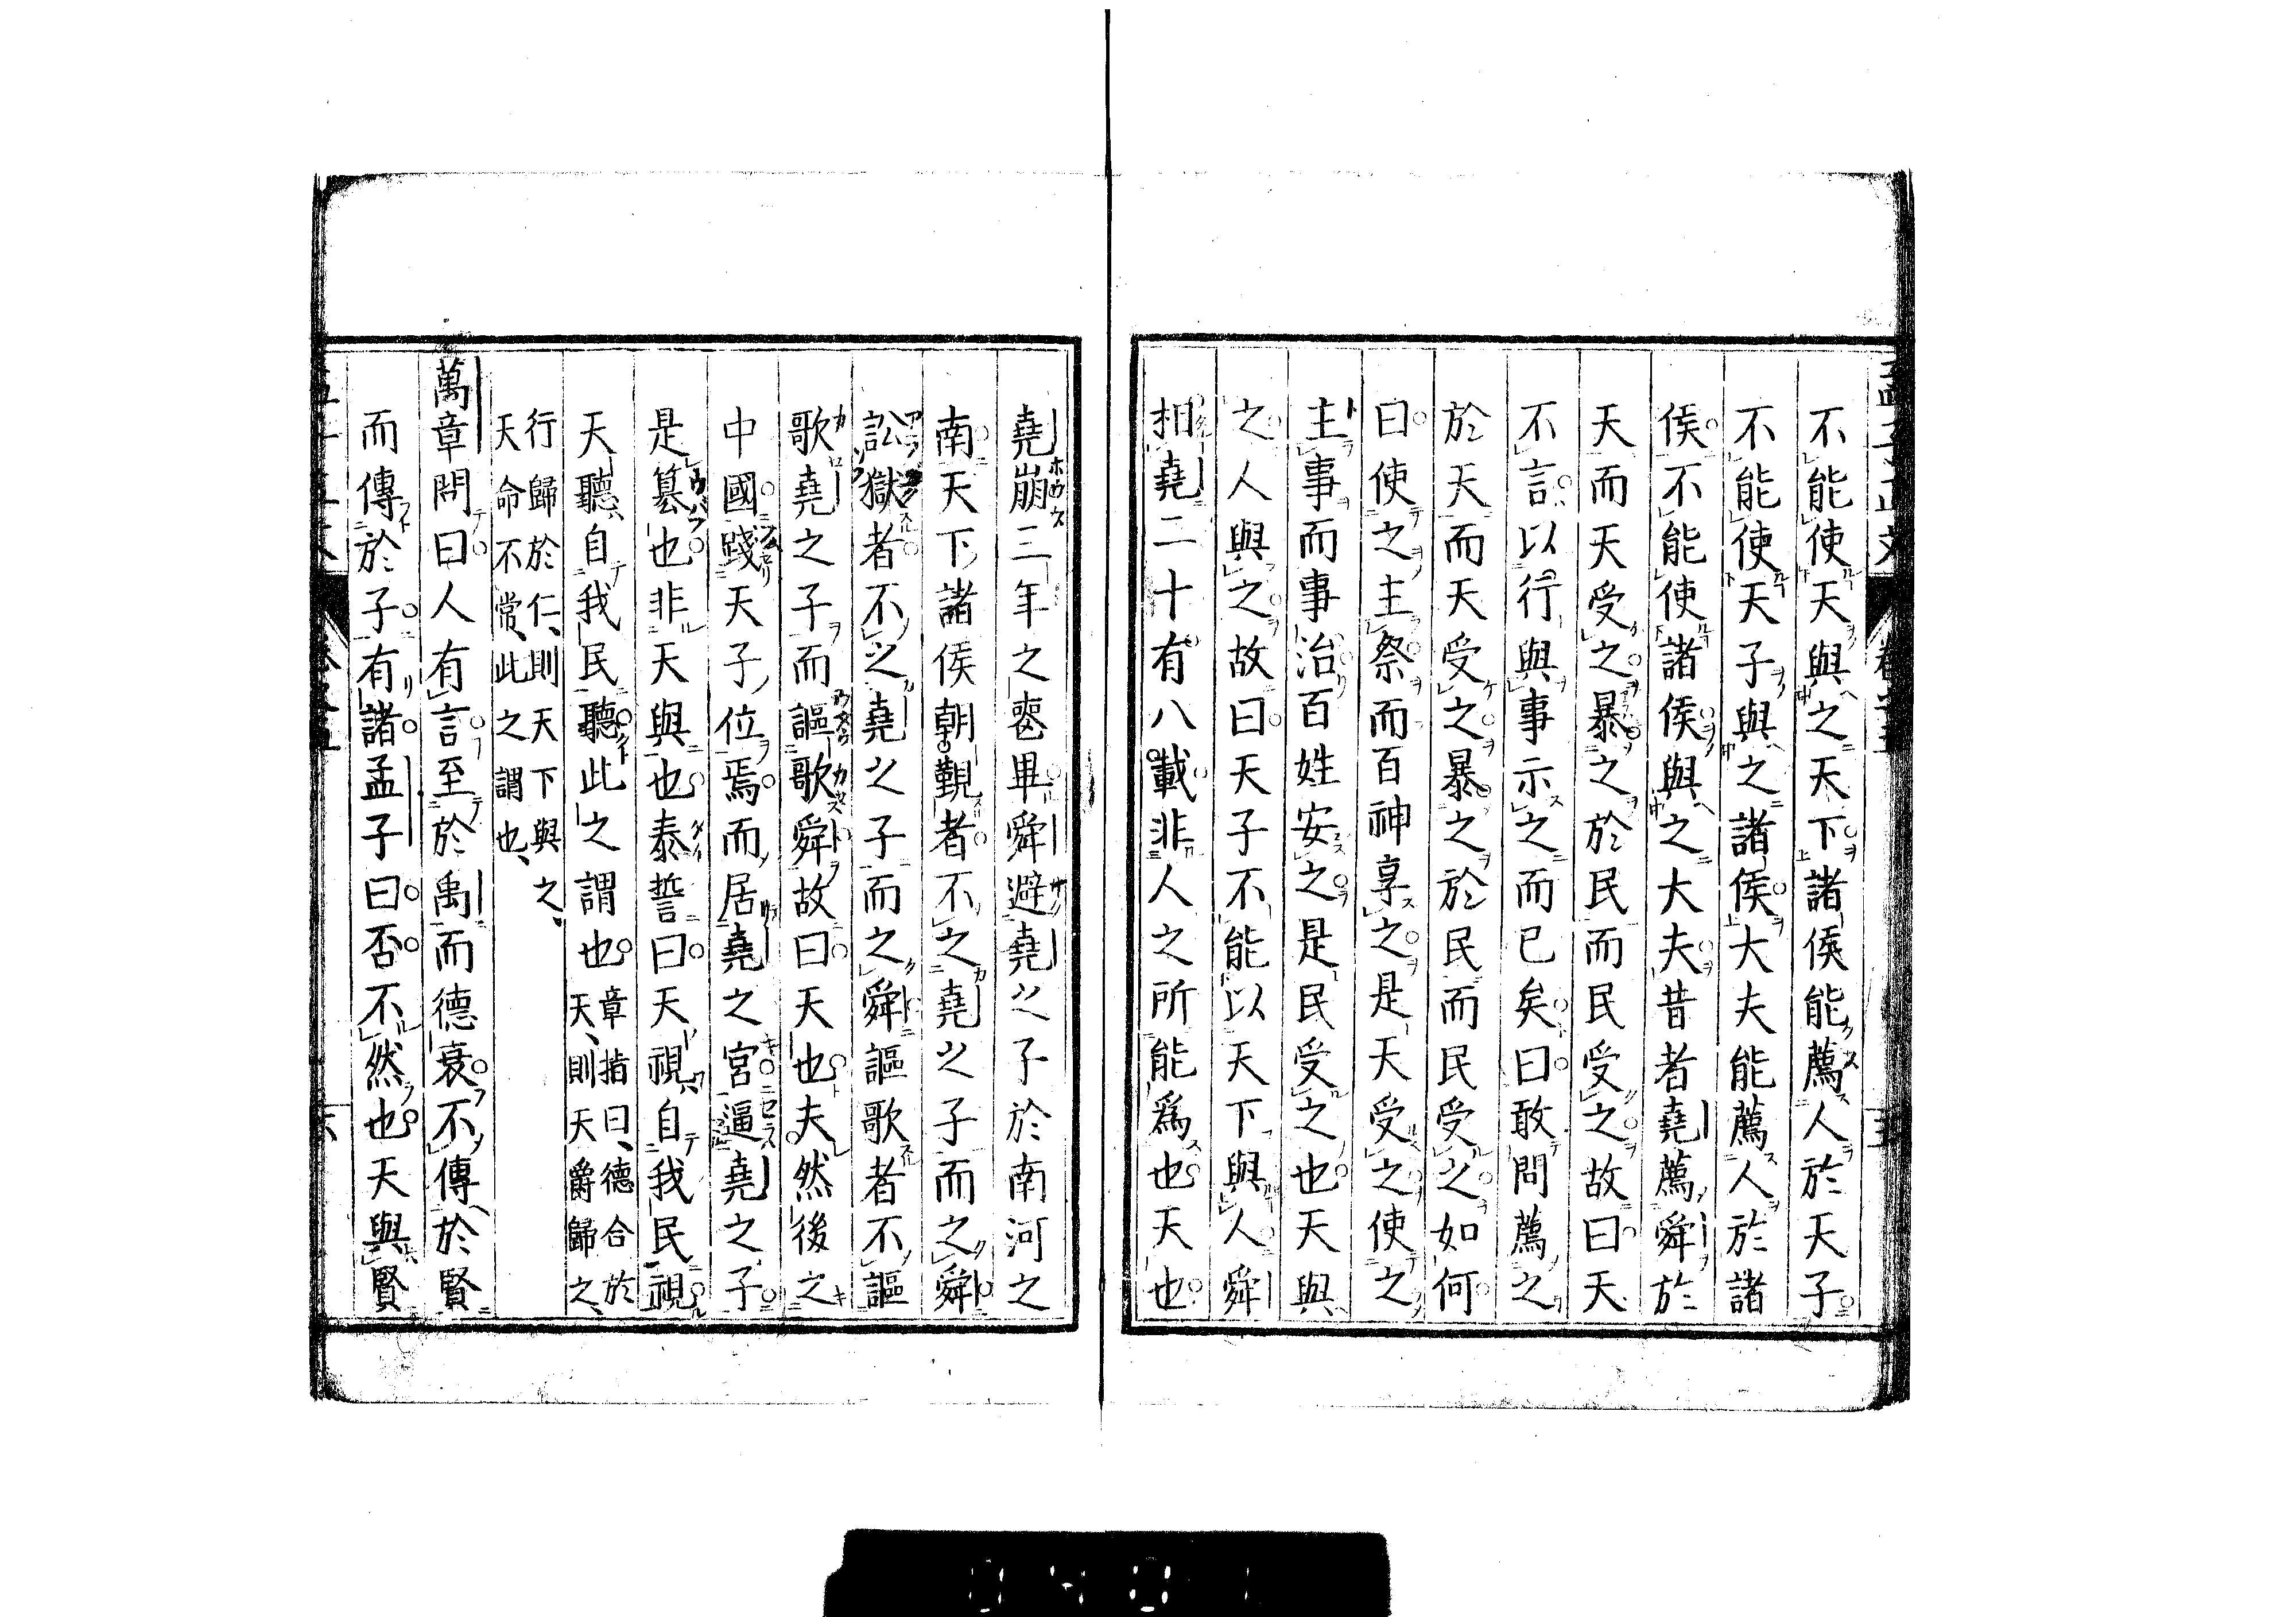 不能使天與之天下諸侯能薦人於天子
不能使天子與之諸侯大夫能薦人於諸
侯不能使諸侯與之大夫昔者堯薦舜於
天而天受之暴之於民而民受之故曰天
不言以行與事示之而已矣曰敢問薦之
於天而天受之暴之於民而民受之如何
曰使之主祭而百神享之是天受之使之
主事而事治百姓安之是民受之也天與
之人與之故曰天子不能以天下與人舜
相堯二十有八載非人之所能爲也天也
堯崩三年之喪畢舜避堯之子於南河之
南天下諸侯朝覲者不之堯之子而之舜
訟獄者不之堯之子而之舜謳歌者不謳
歌堯之子而謳歌舜故曰天也夫然後之
中國踐天子位焉而居堯之宮逼堯之子
是簒也非天與也泰誓曰天視自我民視
天聽自我民聽此之謂也
章指曰德合於
天則天爵歸之
行歸於仁則天下與之
天命不常此之謂也
萬章問曰人有言至於禹而德衰不傳於賢
而傳於子有諸孟子曰否不然也天與賢